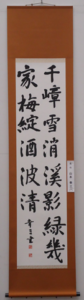 千嶂雪消溪影綠幾
家梅綻酒波清